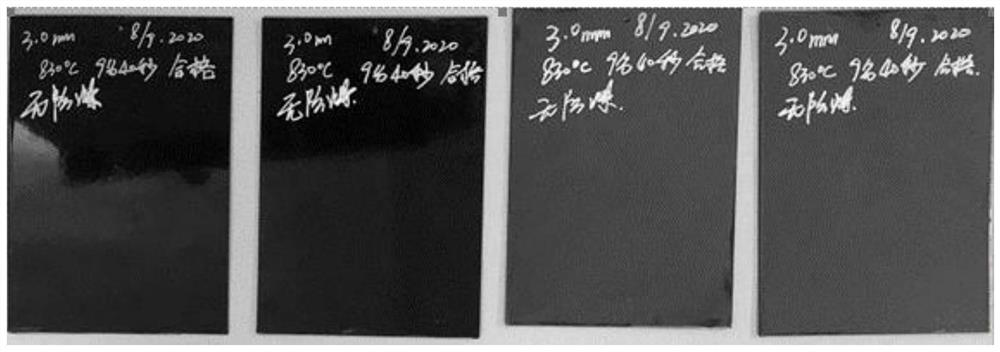 3.0mm 8/9.2020
830℃ 9分40秒 合格
无
3.0mm 8/9.2020
830℃ 9分40秒 合格
无
3.0mm 8/9.2020
830℃ 9分40秒 合格
无
3.0mm 8/9.2020
830℃ 9分40秒 合格.
无